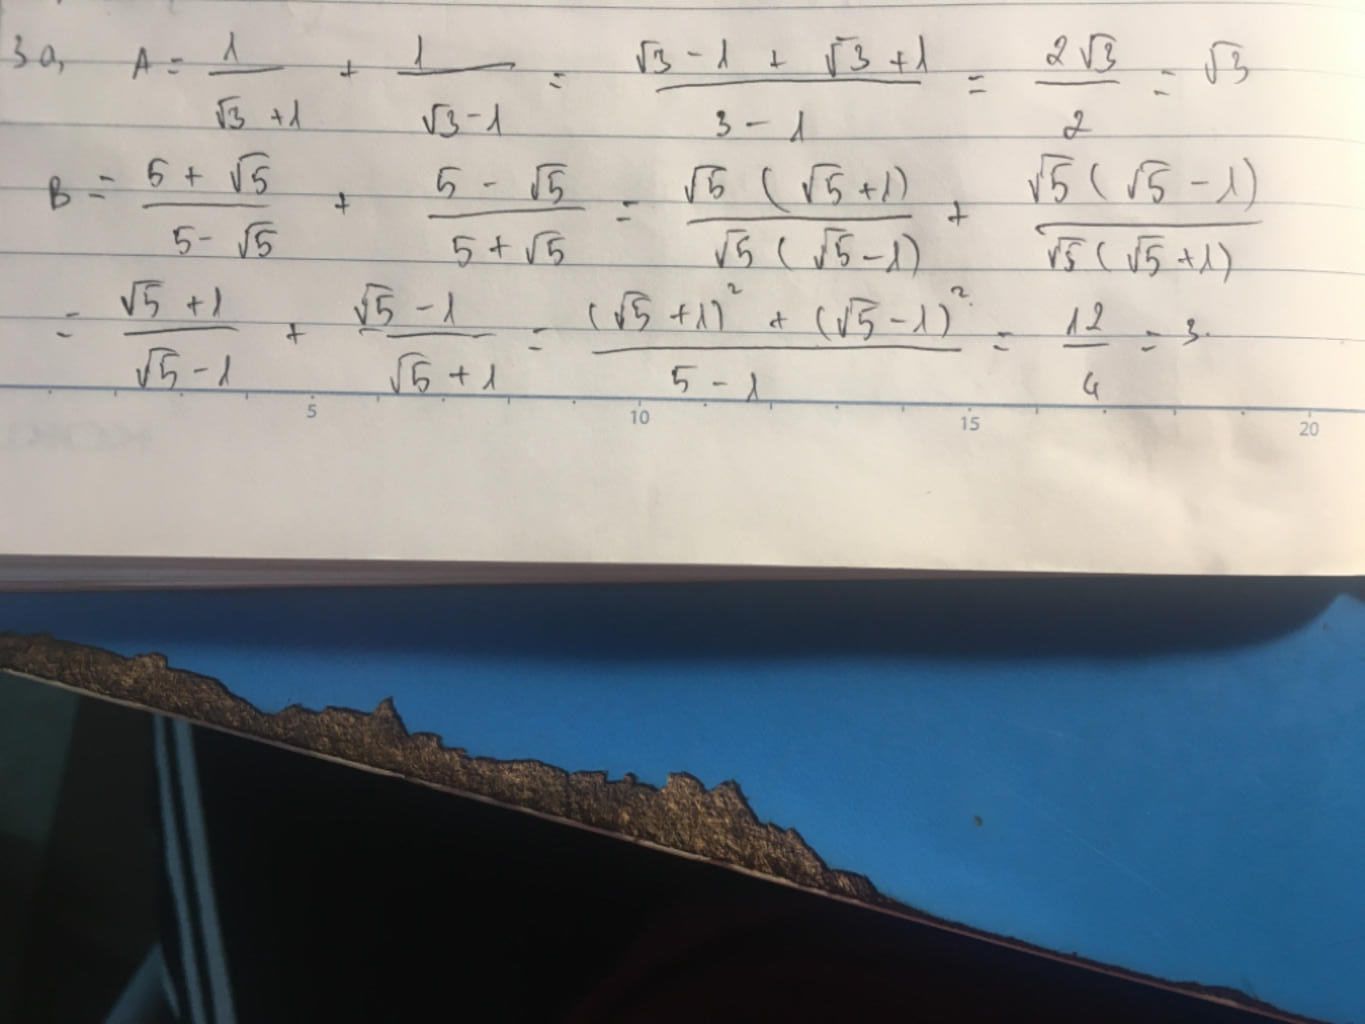 3a, A = 1/(√3 + 1) + 1/(√3 - 1) = (√3 - 1 + √3 + 1)/(3 - 1) = 2√3/2 = √3
B = (5 + √5)/(5 - √5) + (5 - √5)/(5 + √5) = √5(√5 + 1)/√5(√5 - 1) + √5(√5 - 1)/√5(√5 + 1)
= (√5 + 1)/(√5 - 1) + (√5 - 1)/(√5 + 1) = ((√5 + 1)² + (√5 - 1)²)/(5 - 1) = 12/4 = 3.
5 10 15 20